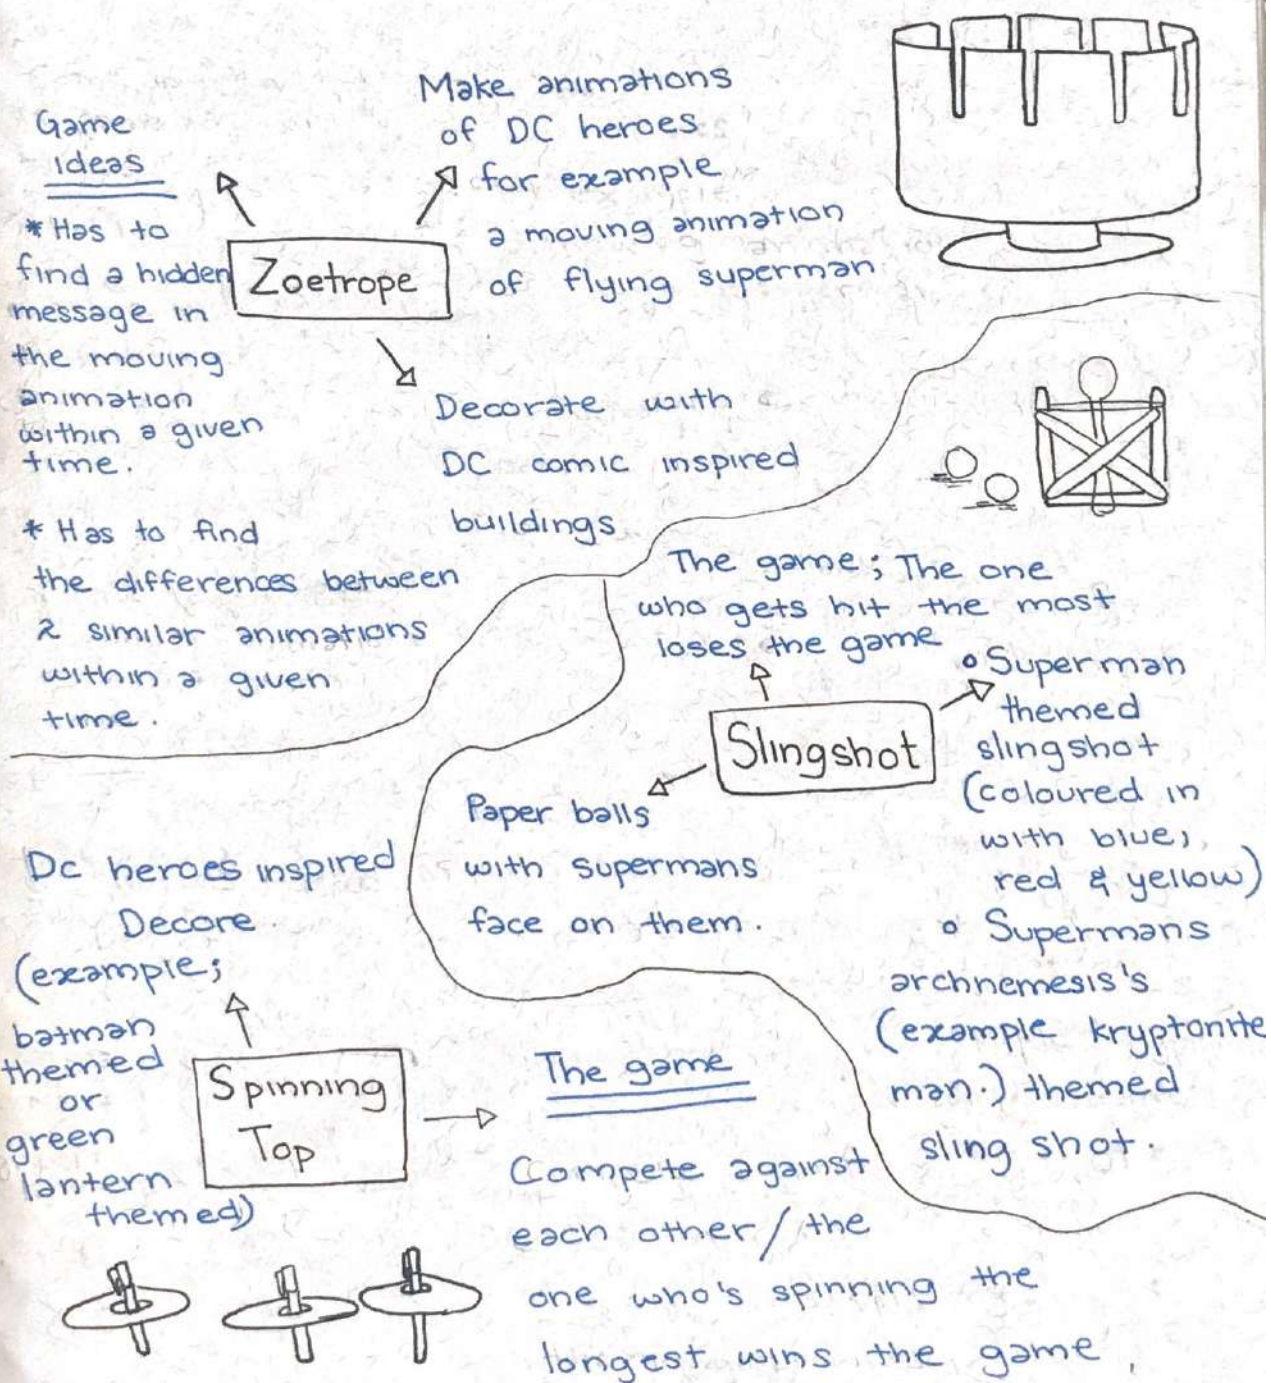 Game
ideas
* Has to
find a hidden
message in
the moving
animation
within a given
time.
* Has to find
the differences between
2 similar animations
within a given
time.
Zoetrope
Make animations
of DC heroes
for example
a moving animation
of flying superman
Decorate with
DC comic inspired
buildings
The game; The one
who gets hit the most
loses the game
Slingshot
o Superman
themed
slingshot
(coloured in
with blue,
red & yellow)
o Supermans
archnemesis's
(example kryptonite
man.) themed
sling shot.
Paper balls
with supermans
face on them.
Dc heroes inspired
Decore
(example;
batman
themed
or
green
lantern
themed)
Spinning
Top
The game
Compete against
each other/the
one who's spinning the
longest wins the game,